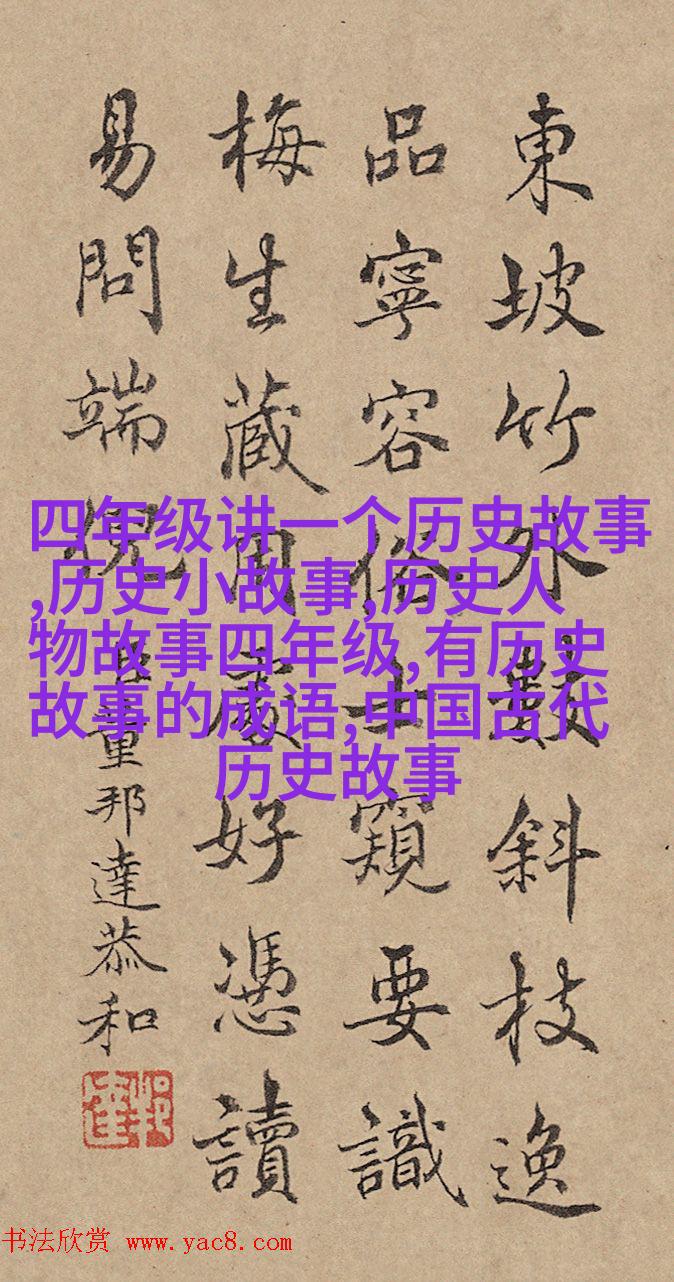 東坡竹外數斜枝逸
品寧容俗士窺要識
梅生藏用處好憑讀
易問端倪 臣董邦達恭和
四年级讲一个历史故事
,历史小故事,历史人
物故事四年级,有历史
故事的成语,中国古代
历史故事
书法欣赏 www.yac8.com